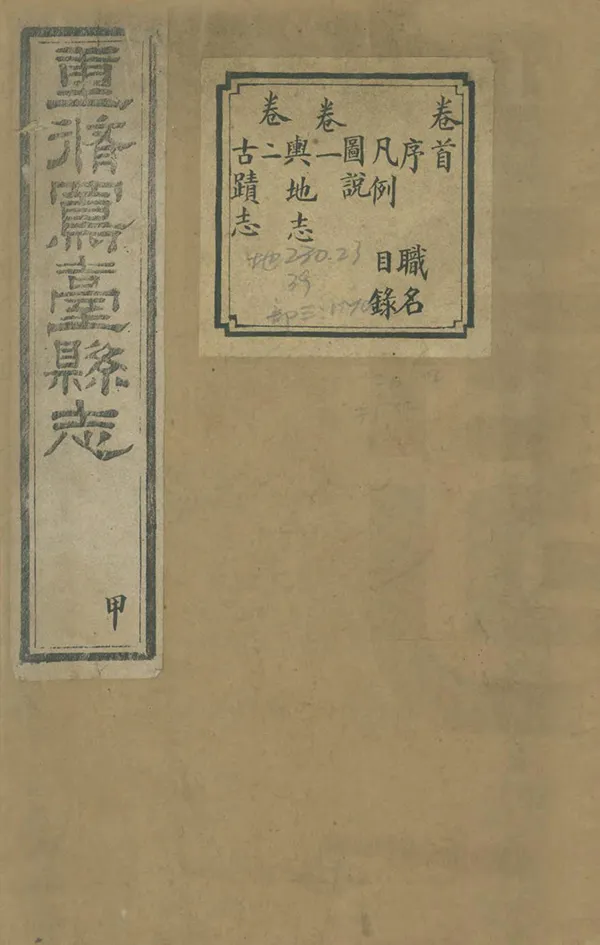 重脩鳳臺縣志
甲
卷首
序 職名
凡例 目錄
圖說
卷一
輿地志
卷二
古蹟志
地230.23
39